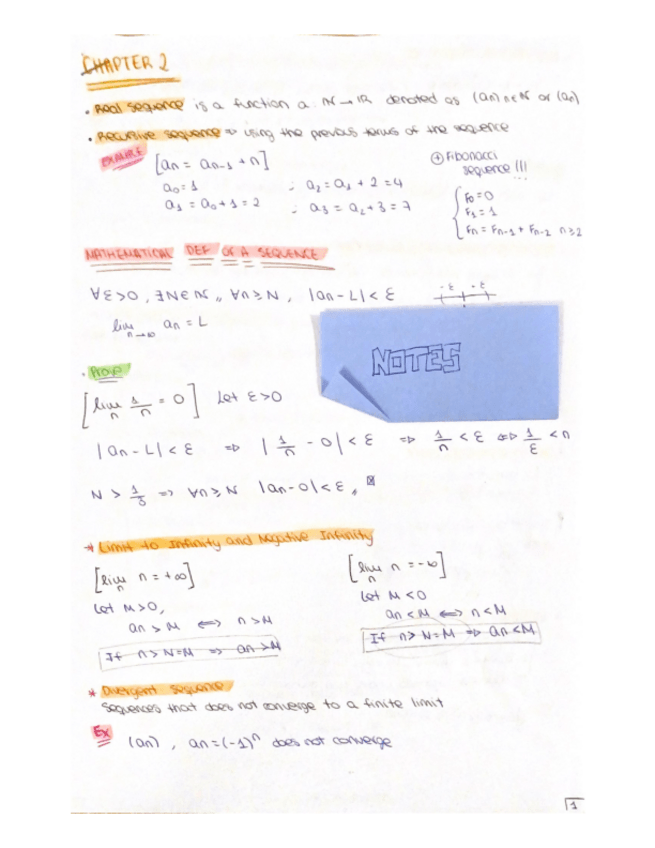 CHAPTER 2
• Real sequence is a function a: ℕ → ℝ denoted as (an) n∈ℕ or (an)
• Recursive sequence => using the previous terms of the sequence
EXAMPLE [an = an-1 + n]
a0 = 1 ; a2 = a1 + 2 = 4
a1 = a0 + 1 = 2 ; a3 = a2 + 3 = 7
⊕ Fibonacci
sequence !!!
F0 = 0
F1 = 1
Fn = Fn-1 + Fn-2 n≥2
MATHEMATICAL DEF OF A SEQUENCE
∀ε>0, ∃N∈ℕ,, ∀n≥N, |an - L| < ε
-ε -ε
lim n→∞ an = L
NOTES
• Proof
[lim n 1/n = 0] Let ε>0
|an - L| < ε => |1/n - 0| < ε => 1/n < ε <=> 1/ε < n
N > 1/ε => ∀n≥N |an - 0| < ε,, ☒
* Limit to Infinity and Negative Infinity
[lim n n = +∞]
Let M>0,
an > M <=> n > M
If n > N=M => an > M
[lim n n = -∞]
Let M<0
an < M <=> n < M
If n > N=M => an < M
* Divergent Sequence
Sequences that does not converge to a finite limit
Ex (an), an = (-1)^n does not converge
1